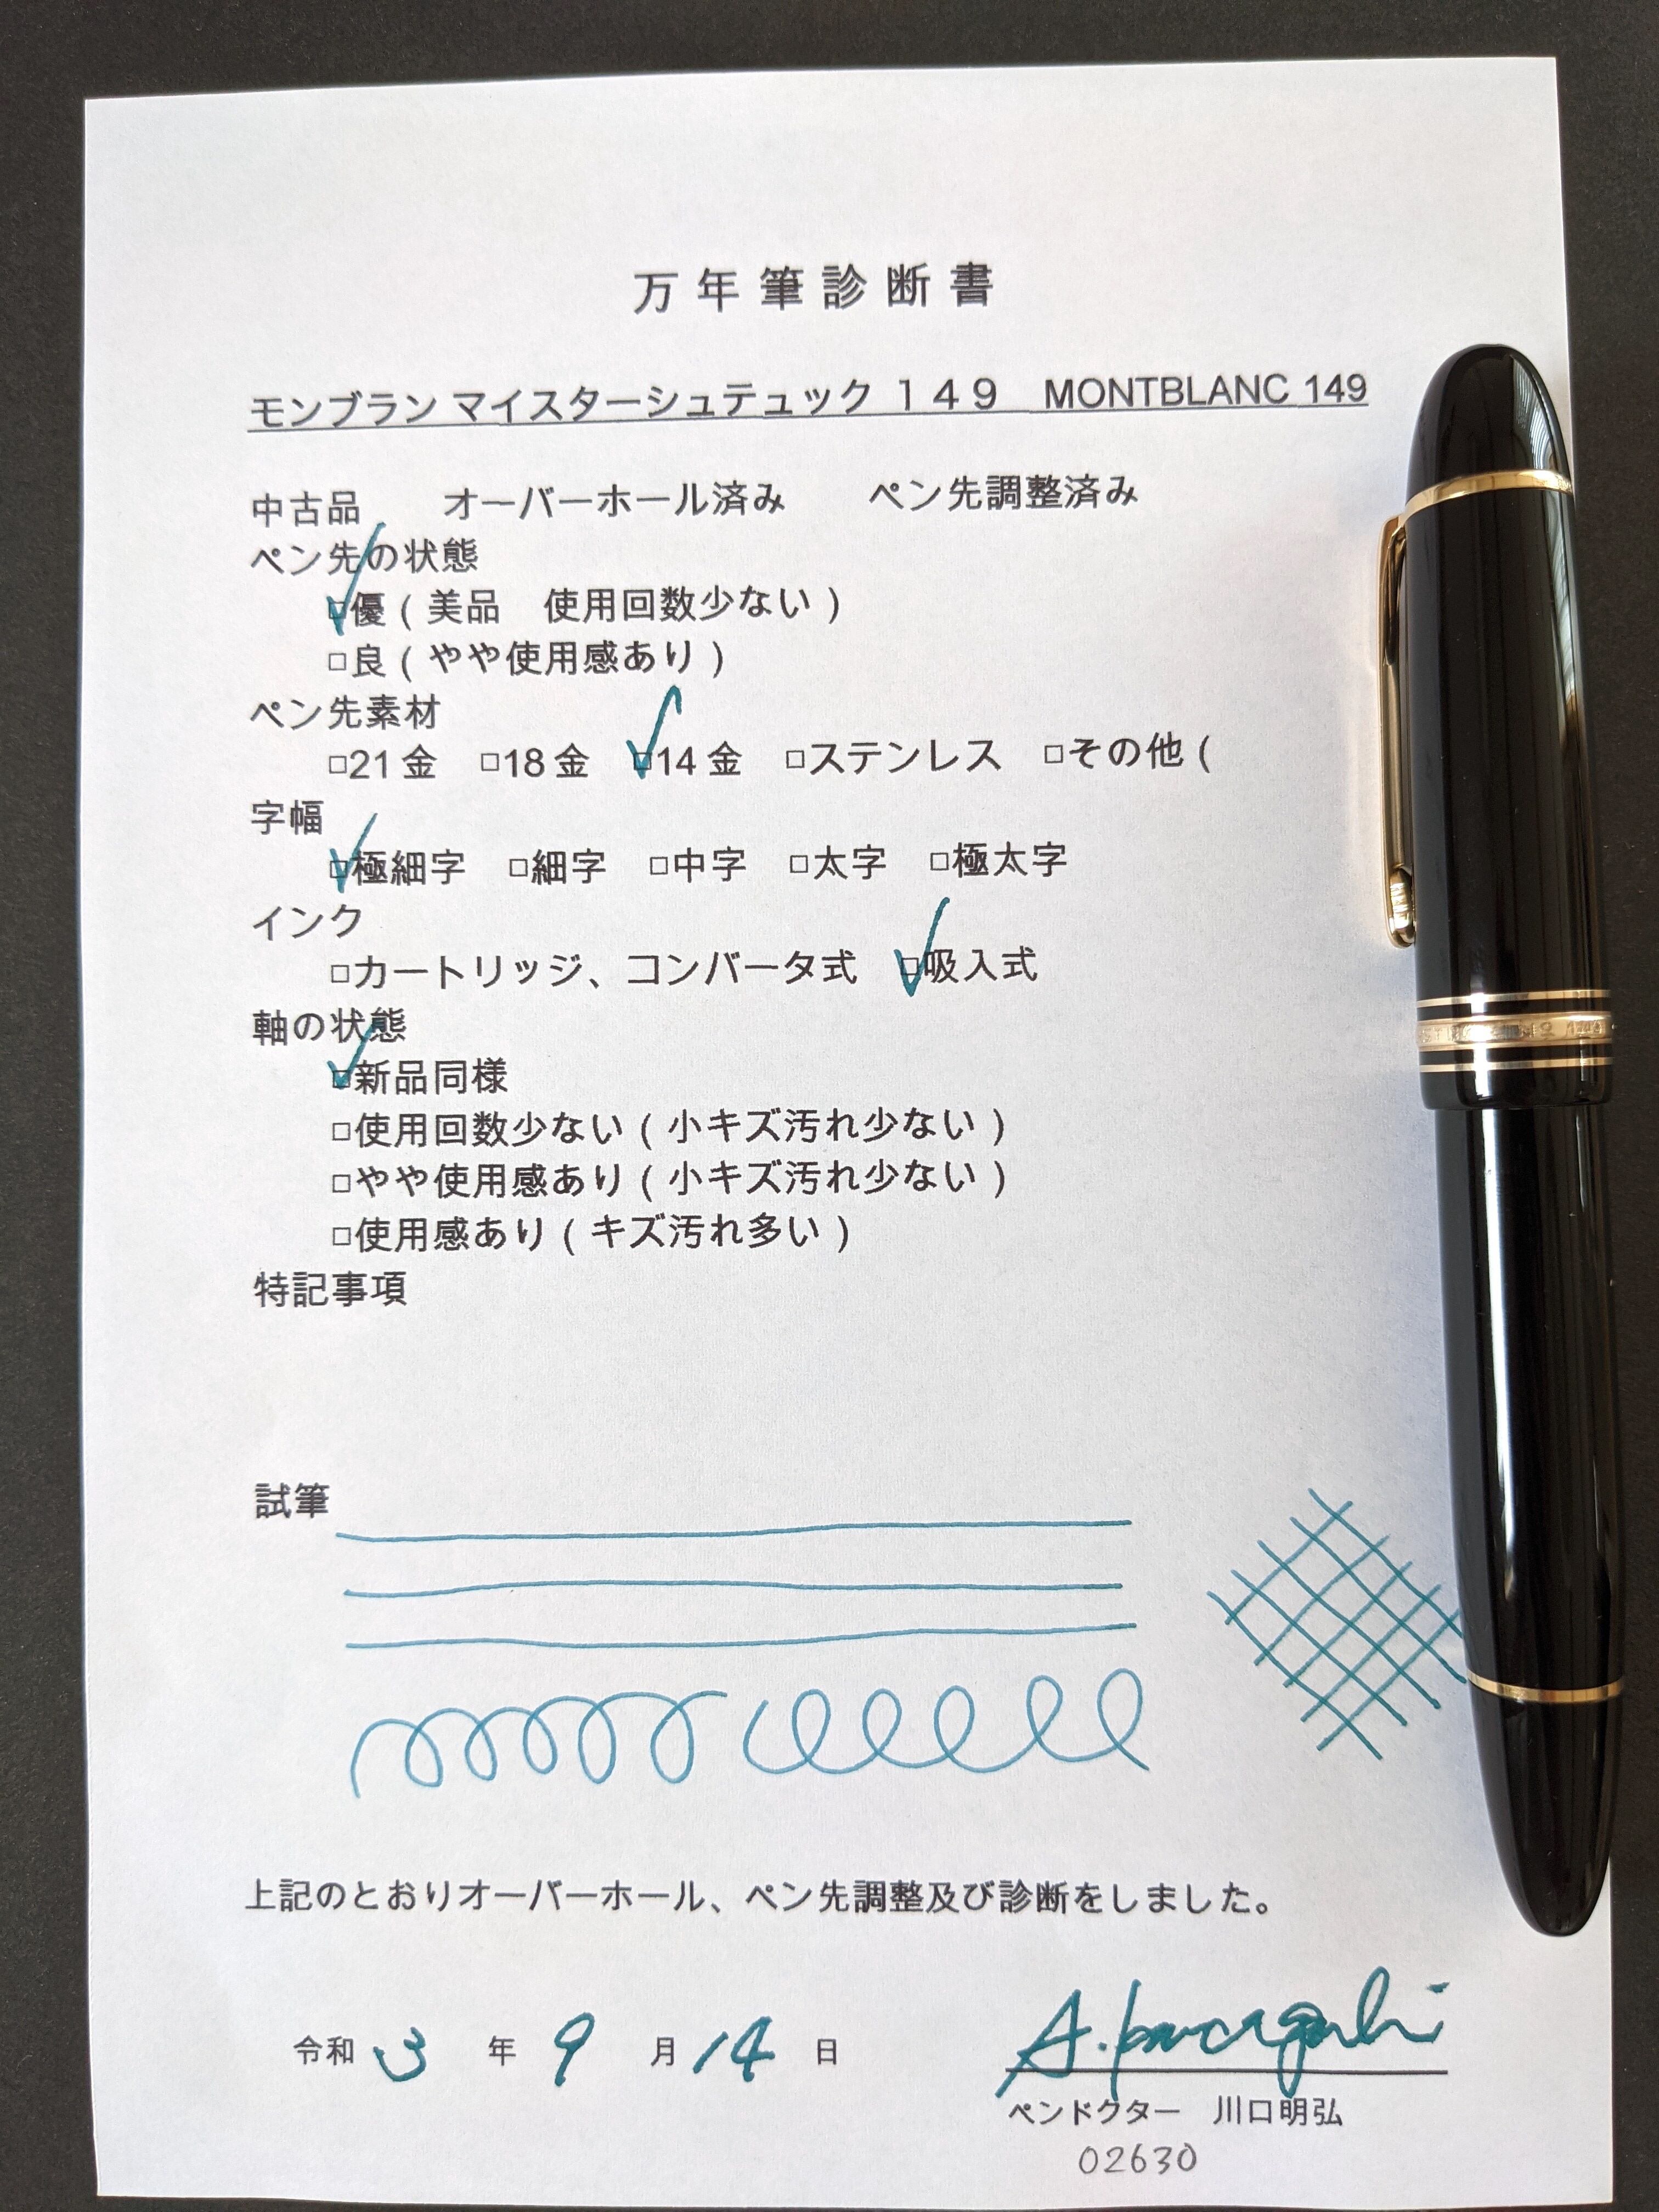 万年筆診断書
モンブラン マイスターシュテュック １４９　MONTBLANC 149
中古品　　オーバーホール済み　　ペン先調整済み
ペン先の状態
□優（美品　使用回数少ない）
□良（やや使用感あり）
ペン先素材
□21金　□18金　□14金　□ステンレス　□その他（
字幅
□極細字　□細字　□中字　□太字　□極太字
インク
□カートリッジ、コンバータ式　□吸入式
軸の状態
□新品同様
□使用回数少ない（小キズ汚れ少ない）
□やや使用感あり（小キズ汚れ少ない）
□使用感あり（キズ汚れ多い）
特記事項
試筆
上記のとおりオーバーホール、ペン先調整及び診断をしました。
令和 3 年 9 月 14 日
ペンドクター　川口明弘
02630